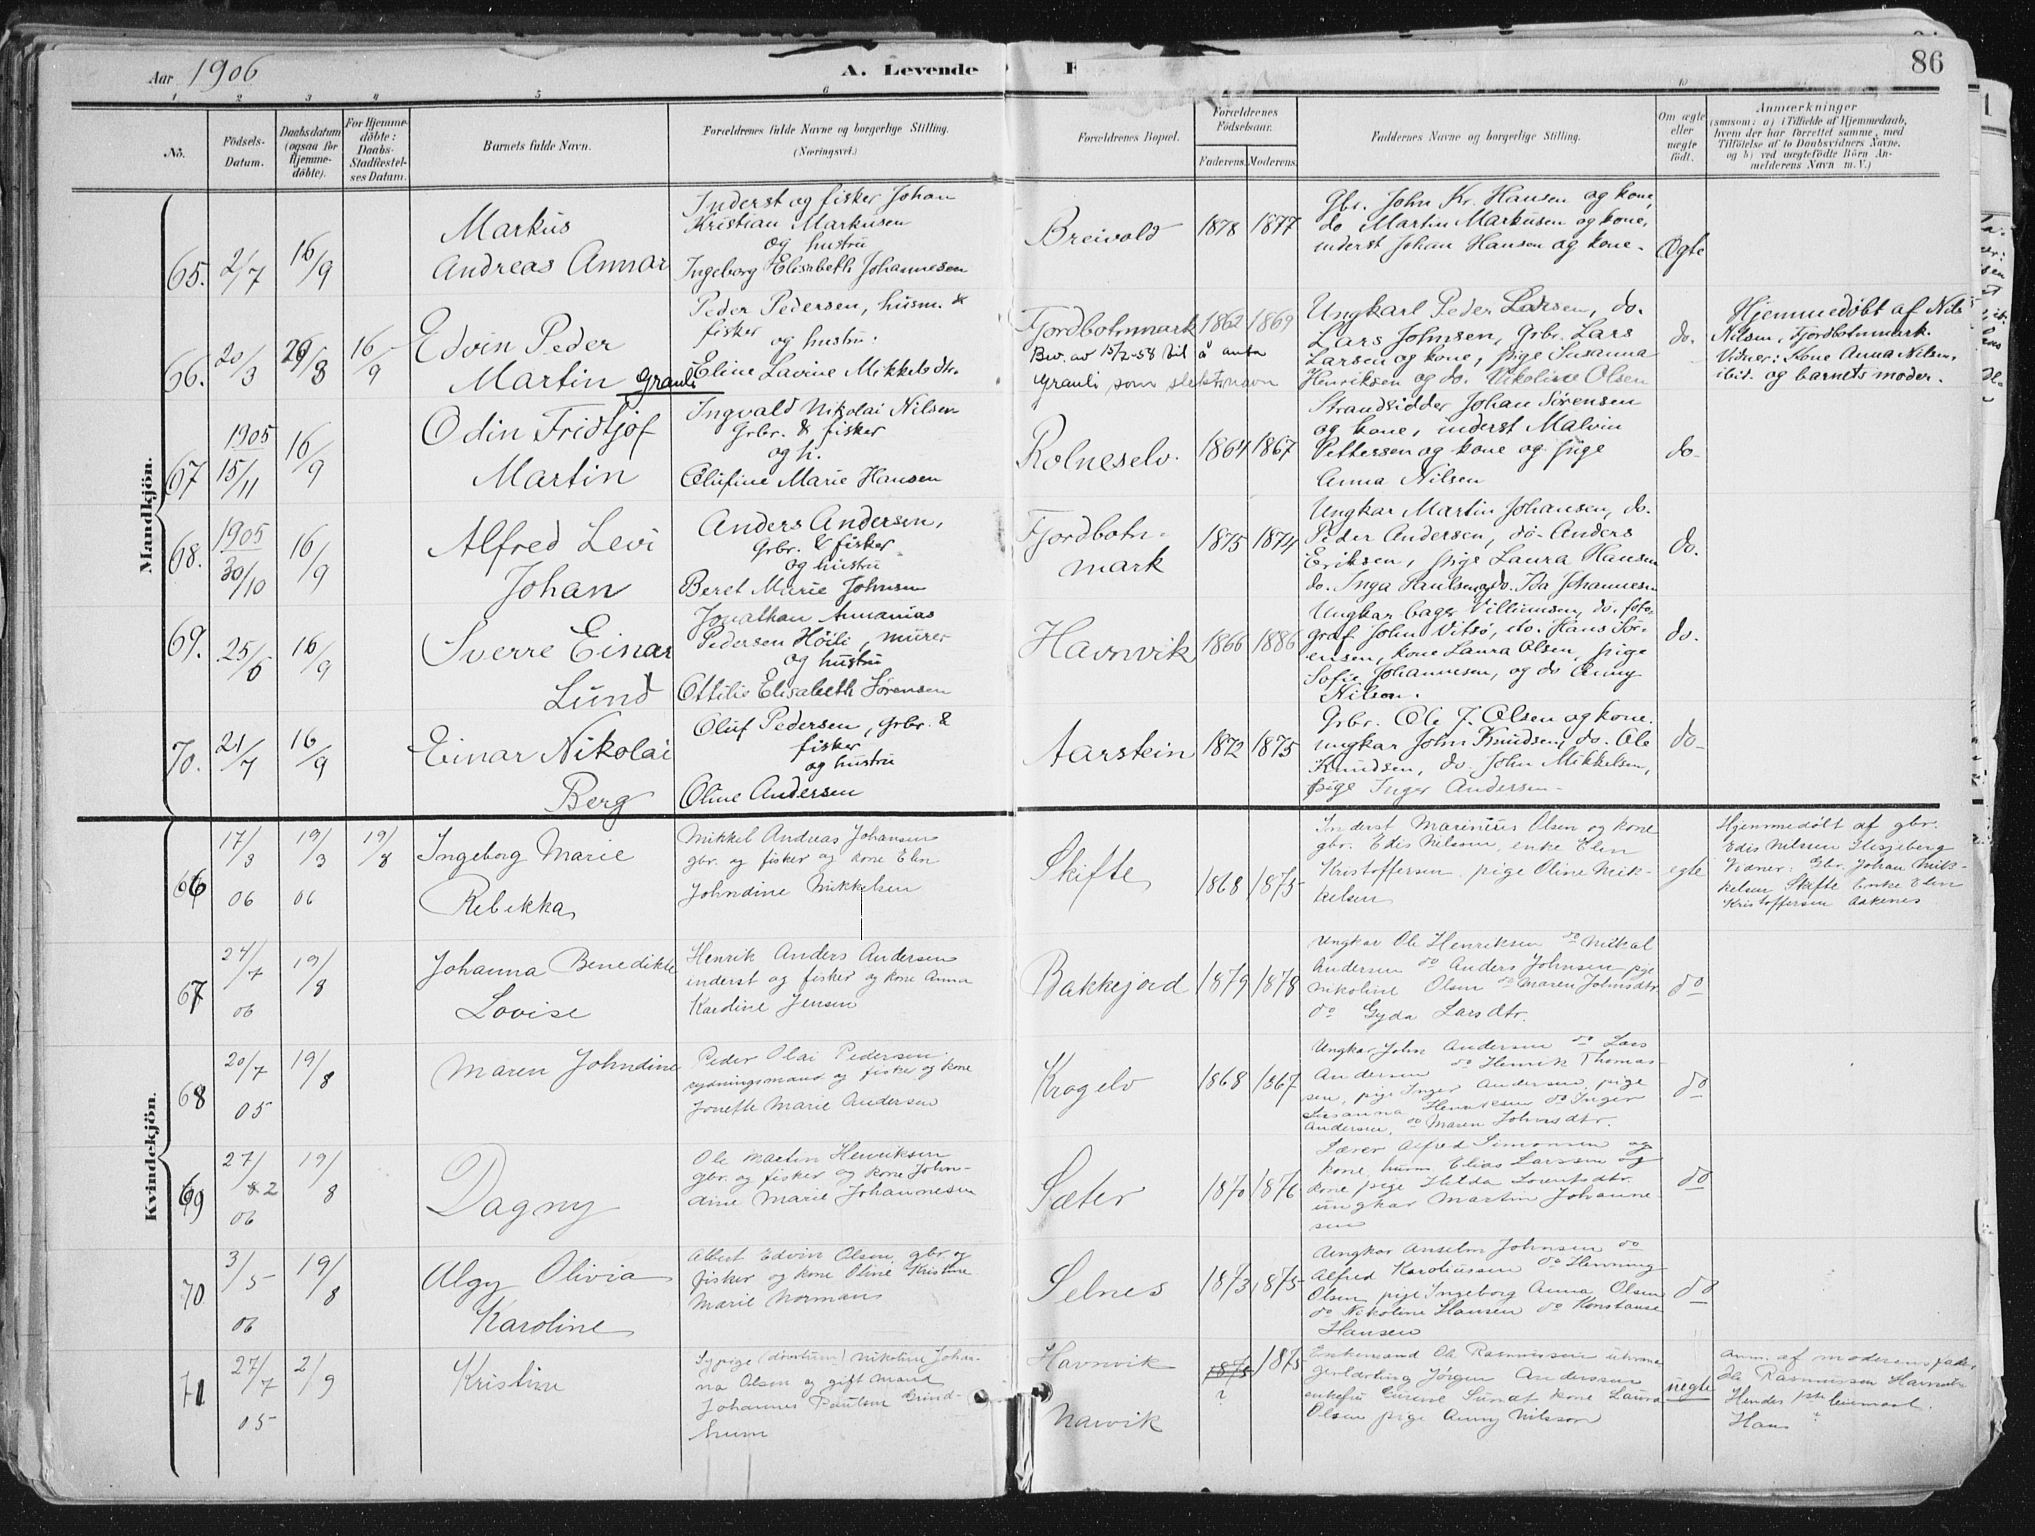 Aar 1906
A. Levende F
86
1 2 3 4 5 6
No.
Födsels-Datum.
Daabsdatum (ogsaa for Hjemme-döbte).
For Hjemme-döbte: Daabs-Stadfæstel-ses Datum.
Barnets fulde Navn.
Forældrenes fulde Navne og borgerlige Stilling.
(Næringsvei.)
Forældrenes Bopæl.
Forældrenes Födselsaar.
Faderens.
Moderens.
Faddernes Navne og borgerlige Stilling.
Om ægte eller uægte födt.
Anmærkninger
(saasom: a) i Tilfælde af Hjemmedaab,
hvem der har forrettet samme, med
Tilföielse af to Daabsvidners Navne,
og b) ved uægtefödte Börn An-
melderens Navn m. V.)
Mandkjön.
65. 2/7 16/9
Markus
Andreas Annar
Inderst og fisker Johan
Kristian Markusen
og hustru
Ingeborg Elisabeth Johannesen
Breivold 1878 1877
Gbr. John Kr. Hansen og kone,
do Martin Markusen og kone,
inderst Johan Hansen og kone.
Ægte
66. 20/3 26/8 16/9
Edvin Peder
Martin Grauli
Peder Pedersen, husm. &
fisker
og hustru.
Eline Lavine Mikkelsdtr.
Fjordbotnmark 1862 1869
Bev. av 15/2-58 til å anta
Grauli som slektsnavn
Ungkarl Peder Larsen, do.
Lars Johnsen, Grbr. Lars
Larsen og kone, pige Susanna
Henriksen og do. Nikoline Olsen
do.
Hjemmedøbt af Nils
Nilsen, Fjordbotnmark.
Vidner: Kone Anna Nilsen,
ibid. og barnets moder.
67 1905 15/11 16/9
Odin Fridtjof
Martin
Ingvald Nikolai Nilsen
Grbr. & fisker
og h.
Olufine Marie Hansen
Rolneselv. 1864 1867
Strandsidder Johan Sørensen
og kone, inderst Malvin
Pettersen og kone og pige
Anna Nilsen
do
68. 1905 30/10 16/9
Alfred Levi
Johan
Anders Andersen,
Grbr. & fisker
og hustru
Beret Marie Johnsen
Fjordbotn-
mark 1875 1874
Ungkar Martin Johansen, do.
Peder Andersen, do. Anders
Eriksen, pige Laura Hansen
do. Inga Paulsen og do. Ida Johannesen
do.
69. 25/6 16/9
Sverre Einar
Lund
Jonathan Annanias
Pedersen Høili, murer
og hustru
Ottilie Elisabeth Sørensen
Havnvik 1866 1886
Ungkar Villumsen, do. foto-
graf John Vitsø, do. Hans Sør-
ensen, kone Laura Olsen, pige
Sofie Johannesen, og do Anny
Nilsen.
do.
70. 21/7 16/9
Einar Nikolai
Berg
Oluf Pedersen, grbr. &
fisker
og hustru
Oline Andersen
Aarstein 1872 1875
Grbr. Ole J. Olsen og kone.
ungkar John Knudsen, do. Ole
Knudsen, do. John Mikkelsen,
pige Inger Andersen.
do
Kvindekjön.
66 17/3 06 19/3 06 19/8
Ingeborg Marie
Rebekka
Mikkel Andreas Johansen
gbr. og fisker og kone Elen
Johndine Mikkelsen
Skifte 1868 1875
Inderst Marinius Olsen og kone
gbr. Edis Nilssen, enke Elen
Kristoffersen pige Oline Mik-
kelsen
egte
Hjemmedøbt af gbr.
Edis Nilssen
Vidner: Gbr. Johan Mik-
kelsen Skifte Enke Elen
Kristoffersen Aakenes
67 24/7 06 19/8
Johanna Benedikte
Lovise
Henrik Anders Andersen
inderst og fisker og kone Anna
Karoline Jensen
Bakkejord 1879 1878
Ungkar Ole Henriksen do Mikal
Andersen do Anders Johnsen pige
Nikoline Olsen do Maren Johnsdtr
do Gyda Larsdtr.
do
68 20/7 05 19/8
Maren Johndine
Peder Olai Pedersen
rydningsmand og fisker og kone
Jonette Marie Andersen
Krogelv 1868 1867
Ungkar John Andersen do Lars
Andersen do Henrik Thomas-
sen, pige Inger Andersen, pige
Susanna Henriksen do Inger
Andersen, do Maren Johnsdtr.
do
69 27/2 06 19/8
Dagny
Ole Martin Henriksen
gbr. og fisker og kone John-
dine Marie Johannesen
Sæter 1870 1876
Lærer Alfred Simonsen og
kone, husm. Elias Larsen og
kone pige Hilda Lorentsdtr.
ungkar Martin Johanne
sen
do
70 3/5 06 19/8
Algy Olivia
Karoline
Albert Edvin Olsen gbr. og
fisker og kone Oline Kristine
Marie Normann
Selnes 1873 1875
Ungkar Anselm Johnsen do
Alfred Karoliussen do Henning
Olsen pige Ingeborg Anna Olsen
do Nikoline Hansen do Konstanse
Hansen
do
71 27/7 05 2/9
Kristine
Sypige Nikoline Johan-
na Olsen og gift mand
Johannes Paulsen Grind-
hum
Havnvik
Narvik 1875 ? 1875
Enkemand Ole Rasmussen
Jørgen Anderssen
kone Laura
Olsen pige Anny Nilssen
uegte
Anm. af moderens fader
Ole Rasmussen Havnvik
Hendes 1ste leiermaal.
Hans